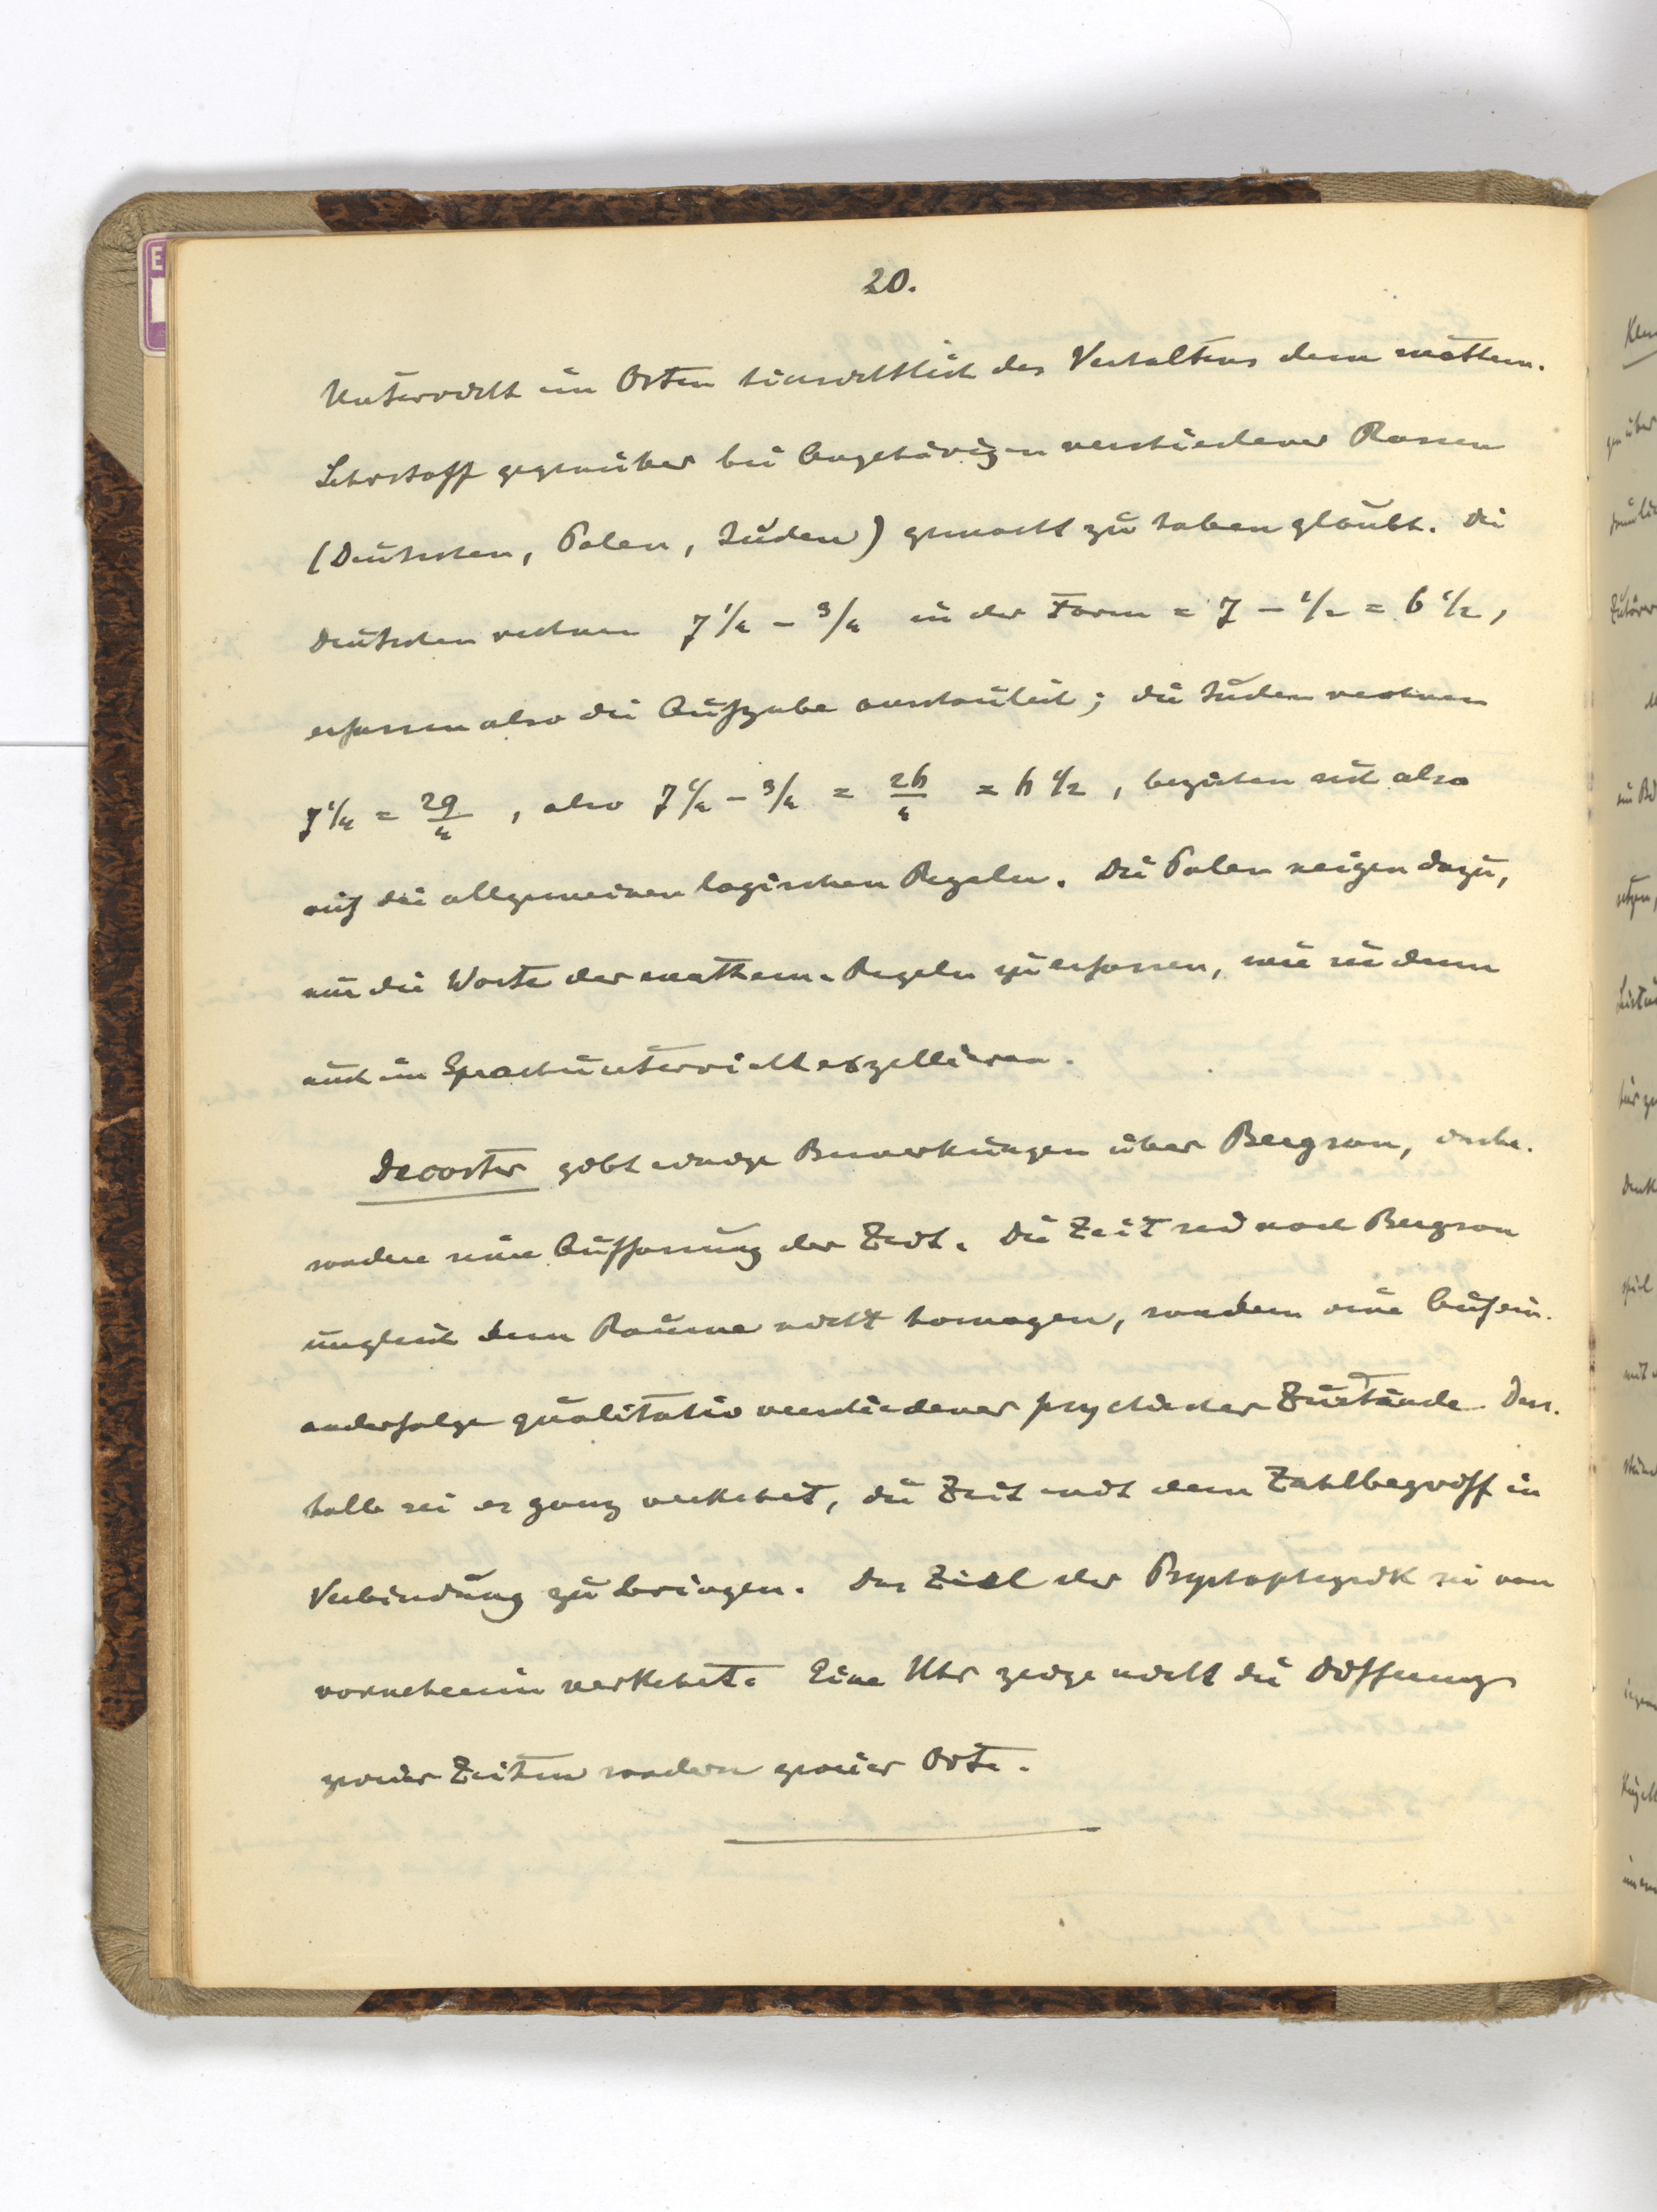 20.
Unterricht im Osten hinsichtlich des Verhaltens dem mathem.
Lehrstoff gegenüber bei Angehörigen verschiedener Rassen
(Deutschen, Polen, Juden) gemacht zu haben glaubt. Die
Deutschen rechnen 7 1/4 - 3/4 in der Form = 7 - 1/2 = 6 1/2,
erfassen also die Aufgabe anschaulich; die Juden rechnen
7 1/4 = 29/4, also 7 1/4 - 3/4 = 26/4 = 6 1/2, beziehen sich also
auf die allgemeinen logischen Regeln. Die Polen neigen dazu,
nur die Worte der mathem. Regeln zu erfassen, wie sie denn
auch im Sprachunterricht exzellieren.
Decoster gibt einige Bemerkungen über Bergson, insbe-
sondere seine Auffassung der Zeit. Die Zeit sei nach Bergson
ungleich dem Raume nicht homogen, sondern eine Aufein-
anderfolge qualitativ verschiedener psychischer Zustände. Des-
halb sei es ganz verkehrt, die Zeit mit dem Zahlbegriff in
Verbindung zu bringen. Das Ziel der Psychophysik sei von
vorneherein verkehrt. Eine Uhr zeige nicht die Differenz
zweier Zeiten sondern zweier Orte.